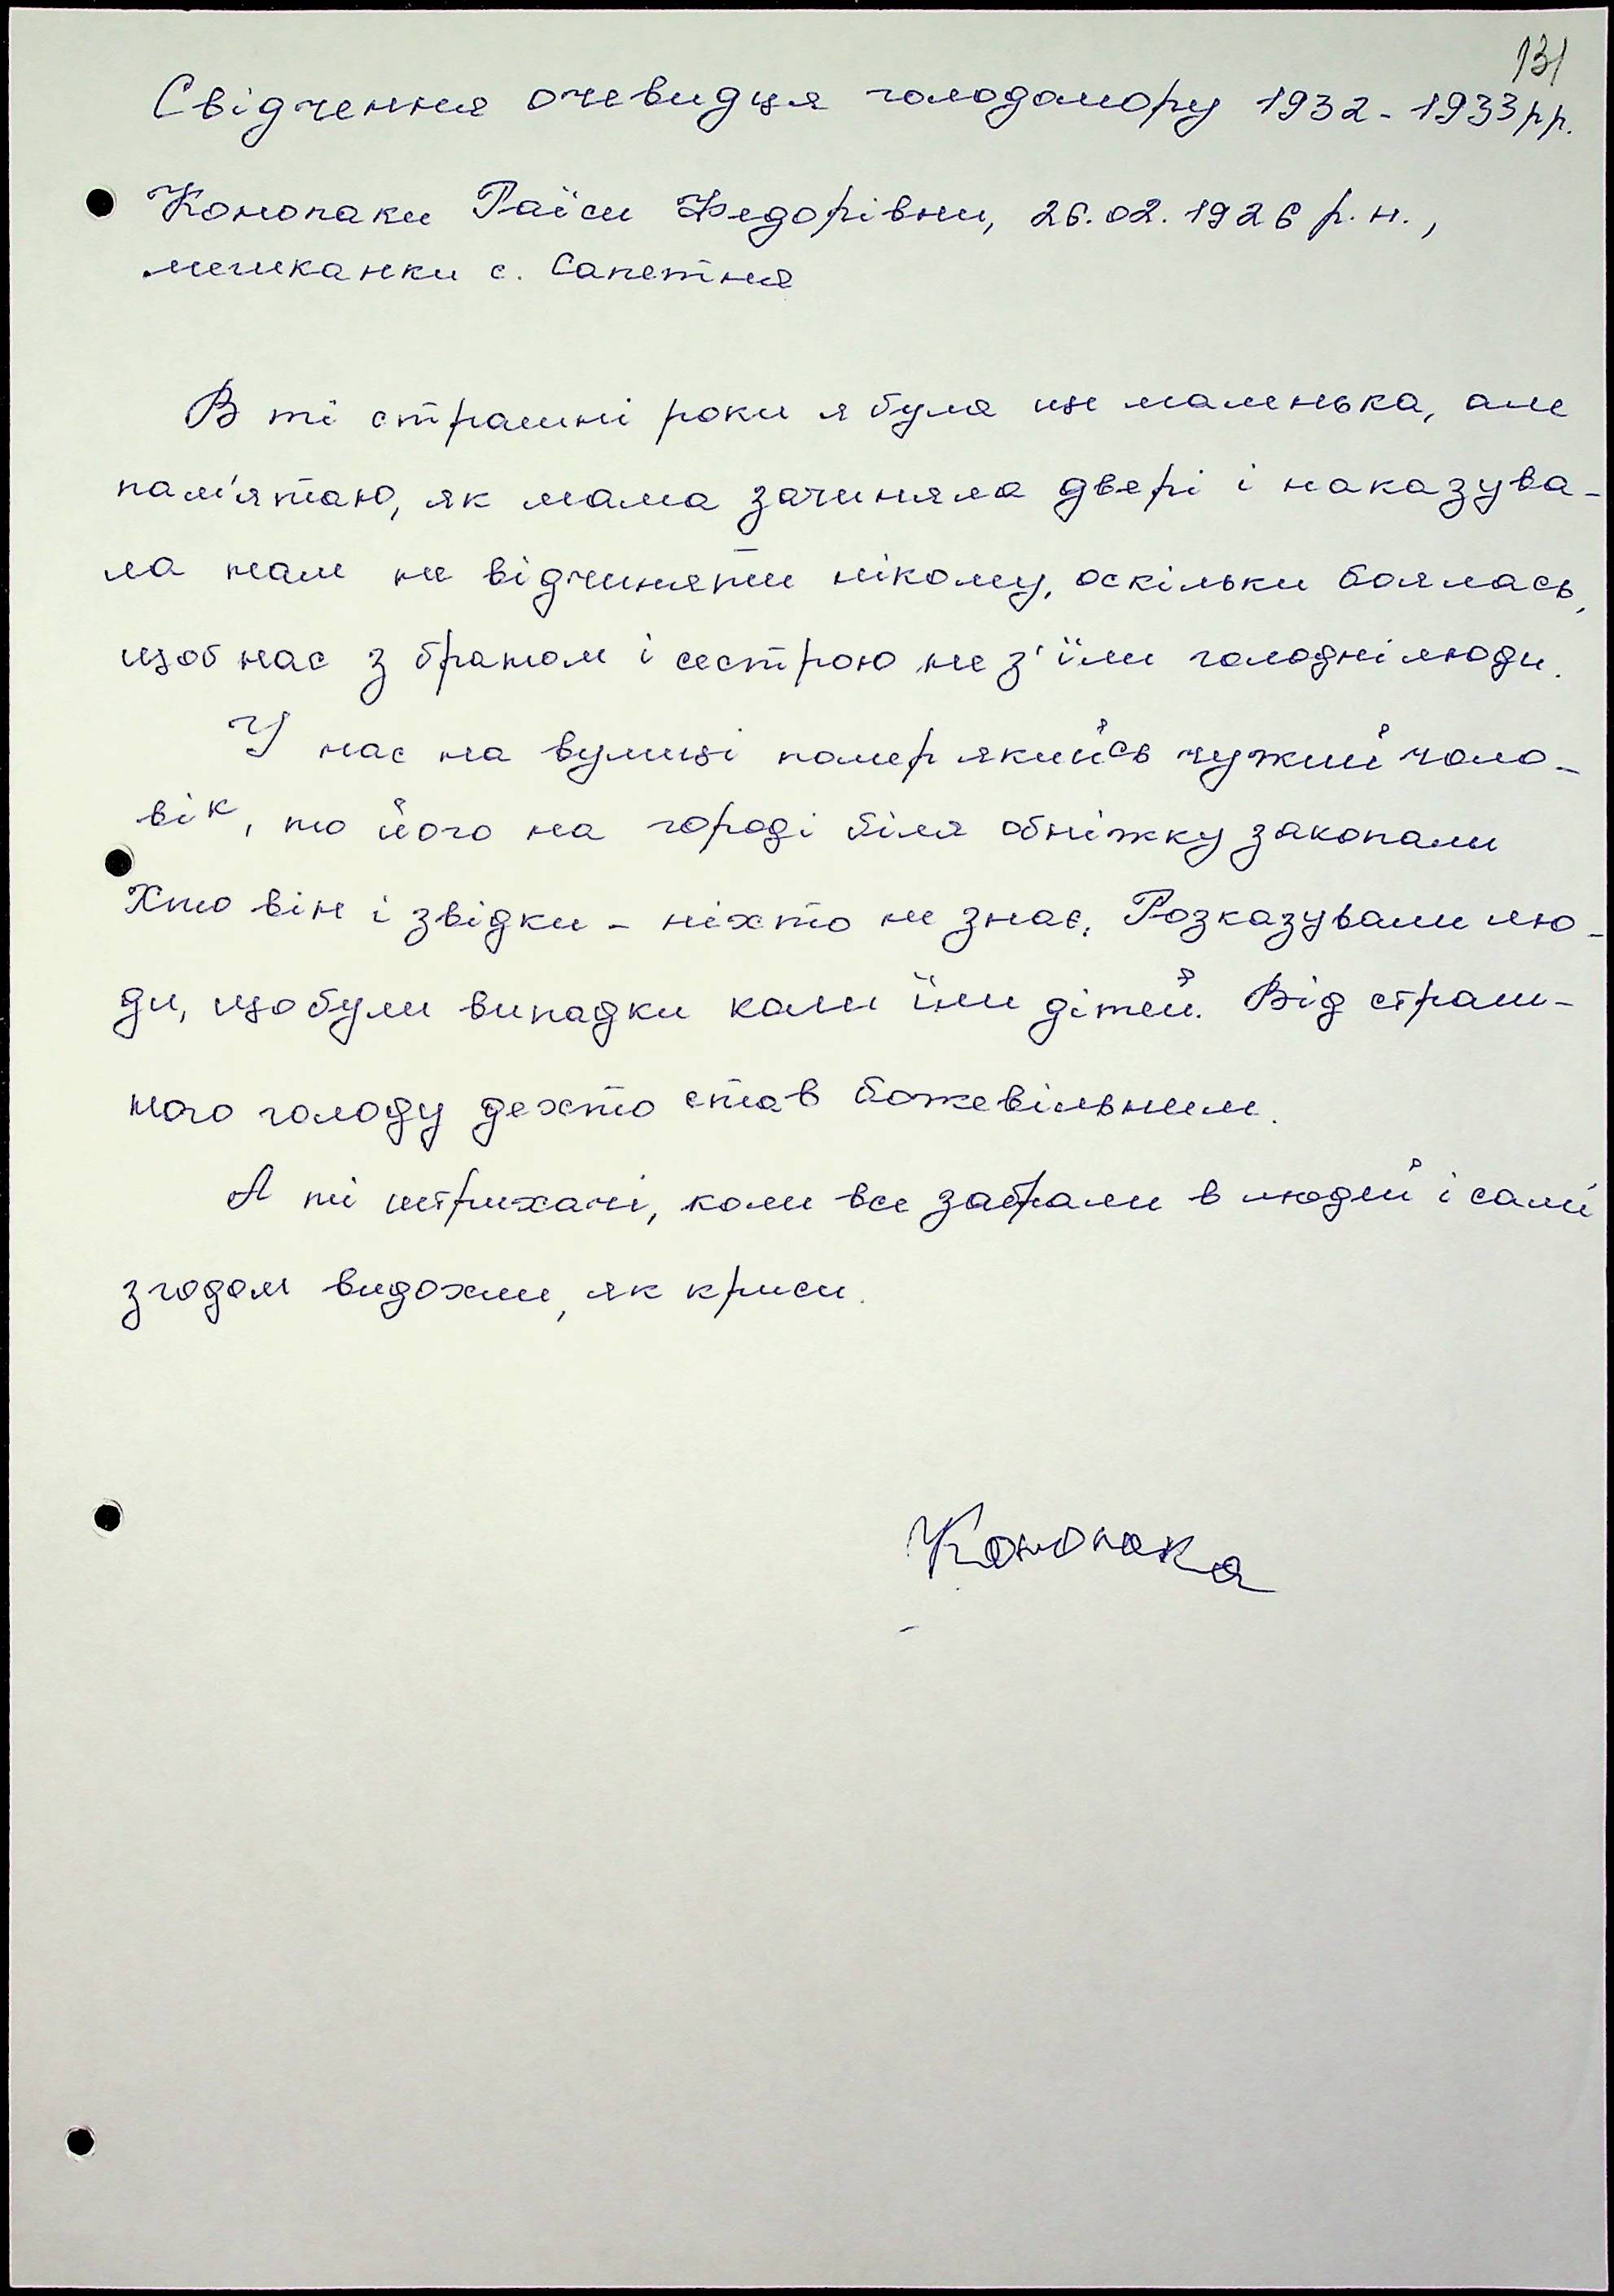 131
Свідчення очевидця голодомору 1932-1933рр.
Конопаки Раїси Федорівни, 26.02.1926 р.н.,
мешканки с. Сапетня
В ті страшні роки я була ще маленька, але
пам'ятаю, як мама зачиняла двері і наказува-
ла нам не відчиняти нікому, оскільки боялась,
щоб нас з братом і сестрою не з'їли голодні люди.
У нас на вулиці помер якийсь чужий чоло-
вік, то його на городі біля обніжку закопали
Хто він і звідки - ніхто не знає. Розказували лю-
ди, що були випадки коли їли дітей. Від страш-
ного голоду дехто став божевільним.
А ті штрихачі, коли все забрали в людей і самі
згодом видохли, як криси.
Конопака